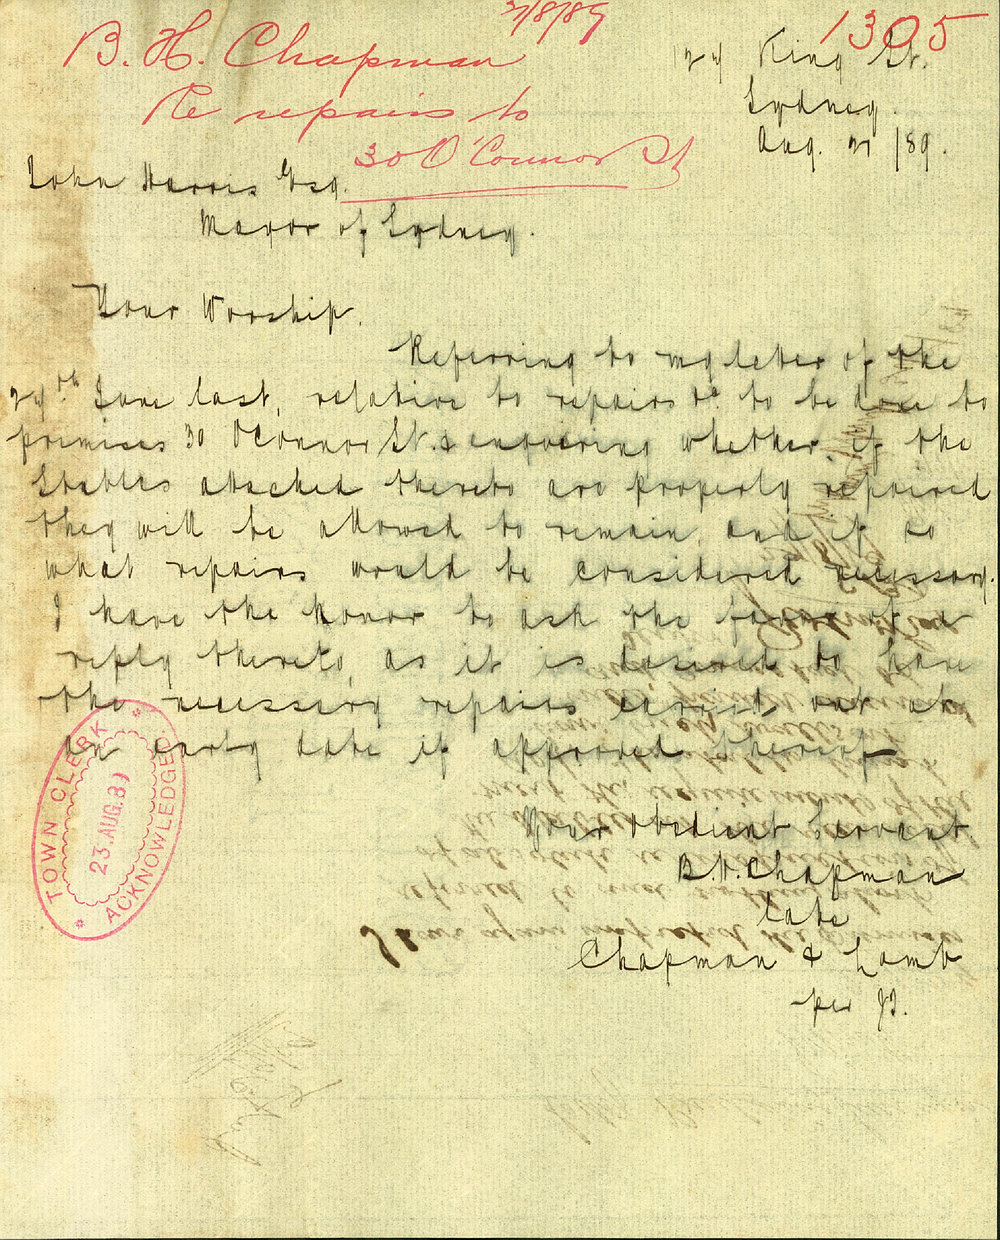 B. H. Chapman
Re repairs to
30 O'Connor St
/8/89
1305
King St.
Sydney.
Aug. /89.
John Harris Esq.
Mayor of Sydney.
Your Worship,
Referring to my letter of the
th June last, relative to repairs &c to be done to
premises 30 O'Connor St. & enquiring whether, if the
Stables attached thereto are properly repaired
they will be allowed to remain, and if so
what repairs would be considered necessary.
I have the honor to ask the favor of a
reply thereto, as it is desired to have
the necessary repairs carried out at
an early date if approved thereof
Your Obedient Servant
B.H. Chapman
late
Chapman & Lamb
per
TOWN CLERK
23.AUG.89
ACKNOWLEDGED